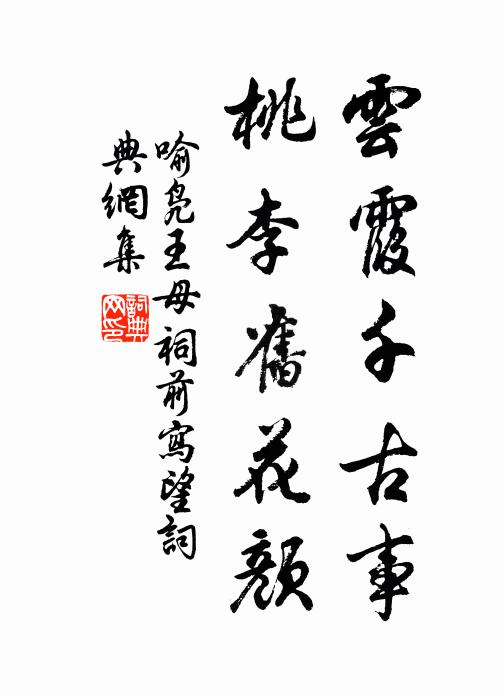 雲霞千古事
桃李舊花顏
喻鳧王母祠前寫望詞
典網集
詞典網印